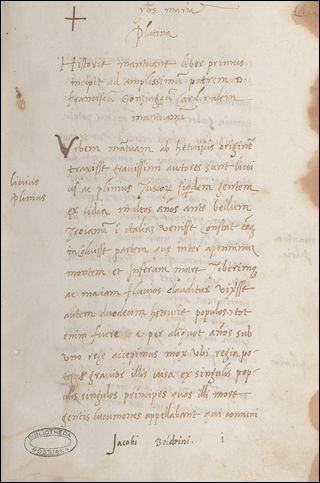 yhs maria
Platina
Historie mantuane liber primus
incipit ad amplissimũ patrem D.
Franciscũ Gonzagam Cardinalem
mantuanũ
Vrbem mãtuam ab hetruscis originẽ
traxisse gravissimi autores sunt livi
us ac plinius
livius
plinius
ex lidia multos ãnos ante bellum
Troianum ĩ italiaz venisse constat eãq
incoluisse partem que inter apenninuz
montem et inferum mare Tiberimqz
ac macram fluvios clauditur vixisse
autem duodecim hetrurie populos: tot
enim fuere per aliquot ãnos sub
uno rege accepimus mox ubi regia po-
visa ex singulis pop
ulis singulos principes quos illi more
gentis lucumones appellabant qui comuni
BIBLIOTHECA
ROSSIANA
Jacobi Boldrini. i